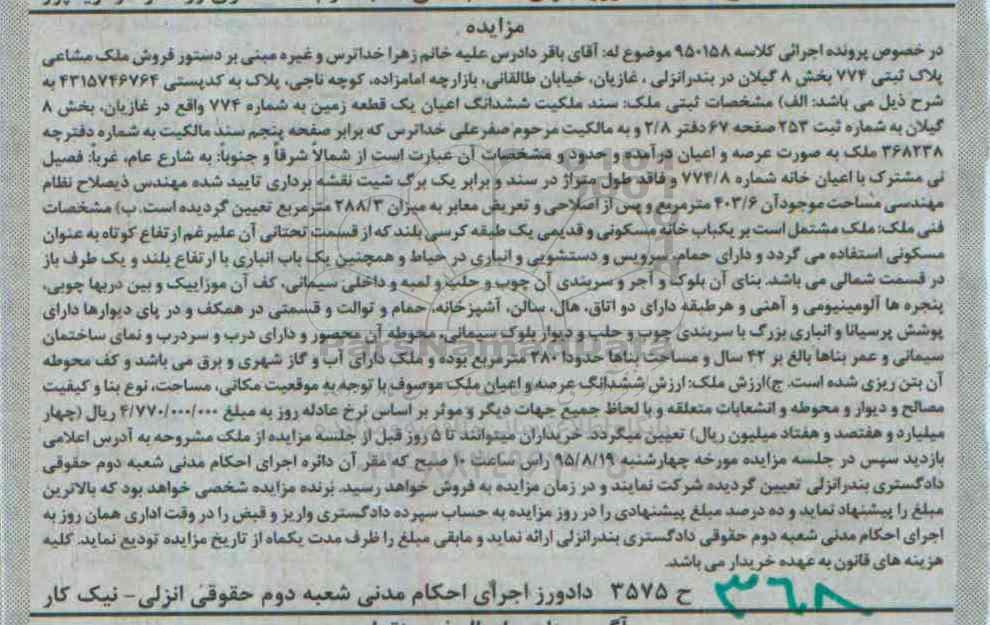 مزایده
در خصوص پرونده اجرائی کلاسه ۹۵۰۱۵۸ موضوع له: آقای باقر دادرس علیه خانم زهرا خداترس و غیره مبنی بر دستور فروش ملک مشاعی
پلاک ثبتی ۷۷۴ بخش ۸ گیلان در بندرانزلی ، غازیان، خیابان طالقانی، بازارچه امامزاده، کوچه ناجی، پلاک به کدپستی ۴۳۱۵۷۴۶۷۶۴ به
شرح ذیل می باشد: الف) مشخصات ثبتی ملک: سند ملکیت ششدانگ اعیان یک قطعه زمین به شماره ۷۷۴ واقع در غازیان، بخش ۸
گیلان به شماره ثبت ۲۵۳ صفحه ۶۷ دفتر ۲/۸ و به مالکیت مرحوم صفرعلی خداترس که برابر صفحه پنجم سند مالکیت به شماره دفترچه
۳۶۸۲۳۸ ملک به صورت عرصه و اعیان درآمده و حدود و مشخصات آن عبارت است از شمالاً شرقاً و جنوباً: به شارع عام، غرباً: فصیل
نی مشترک با اعیان خانه شماره ۷۷۴/۸ و فاقد طول متراژ در سند و برابر یک برگ شیت نقشه برداری تایید شده مهندس ذیصلاح نظام
مهندسی مساحت موجودآن ۴۰۳/۶ مترمربع و پس از اصلاحی و تعریض معابر به میزان ۲۸۸/۳ مترمربع تعیین گردیده است. ب) مشخصات
فنی ملک: ملک مشتمل است بر یکباب خانه مسکونی و قدیمی یک طبقه کرسی بلند که از قسمت تحتانی آن علیرغم ارتفاع کوتاه به عنوان
مسکونی استفاده می گردد و دارای حمام، سرویس و دستشویی و انباری در حیاط و همچنین یک باب انباری با ارتفاع بلند و یک طرف باز
در قسمت شمالی می باشد. بنای آن بلوک و آجر و سربندی آن چوب و حلب و لمبه و داخلی سیمانی، کف آن موزاییک و بین دربها چوبی،
پنجره ها آلومینیومی و آهنی و هرطبقه دارای دو اتاق، هال، سالن، آشپزخانه، حمام و توالت و قسمتی در همکف و در پای دیوارها دارای
پوشش پرسیانا و انباری بزرگ با سربندی چوب و حلب و دیوار بلوک سیمانی، محوطه آن محصور و دارای درب و سردرب و نمای ساختمان
سیمانی و عمر بناها بالغ بر ۴۲ سال و مساحت بناها حدودا ۲۸۰ مترمربع بوده و ملک دارای آب و گاز شهری و برق می باشد و کف محوطه
آن بتن ریزی شده است. ج)ارزش ملک: ارزش ششدانگ عرصه و اعیان ملک موصوف با توجه به موقعیت مکانی، مساحت، نوع بنا و کیفیت
مصالح و دیوار و محوطه و انشعابات متعلقه و با لحاظ جمیع جهات دیگر و موثر بر اساس نرخ عادله روز به مبلغ ۴/۷۷۰/۰۰۰/۰۰۰ ریال (چهار
میلیارد و هفتصد و هفتاد میلیون ریال) تعیین میگردد. خریداران میتوانند تا ۵ روز قبل از جلسه مزایده از ملک مشروحه به آدرس اعلامی
بازدید سپس در جلسه مزایده مورخه چهارشنبه ۹۵/۸/۱۹ راس ساعت ۱۰ صبح که مقر آن دائره اجرای احکام مدنی شعبه دوم حقوقی
دادگستری بندرانزلی تعیین گردیده شرکت نمایند و در زمان مزایده به فروش خواهد رسید. برنده مزایده شخصی خواهد بود که بالاترین
مبلغ را پیشنهاد نماید و ده درصد مبلغ پیشنهادی را در روز مزایده به حساب سپرده دادگستری واریز و قبض را در وقت اداری همان روز به
اجرای احکام مدنی شعبه دوم حقوقی دادگستری بندرانزلی ارائه نماید و مابقی مبلغ را ظرف مدت یکماه از تاریخ مزایده تودیع نماید. کلیه
هزینه های قانون به عهده خریدار می باشد.
ح ۳۵۷۵ دادورز اجرای احکام مدنی شعبه دوم حقوقی انزلی- نیک کار
۳۶۸
ParsNamadData